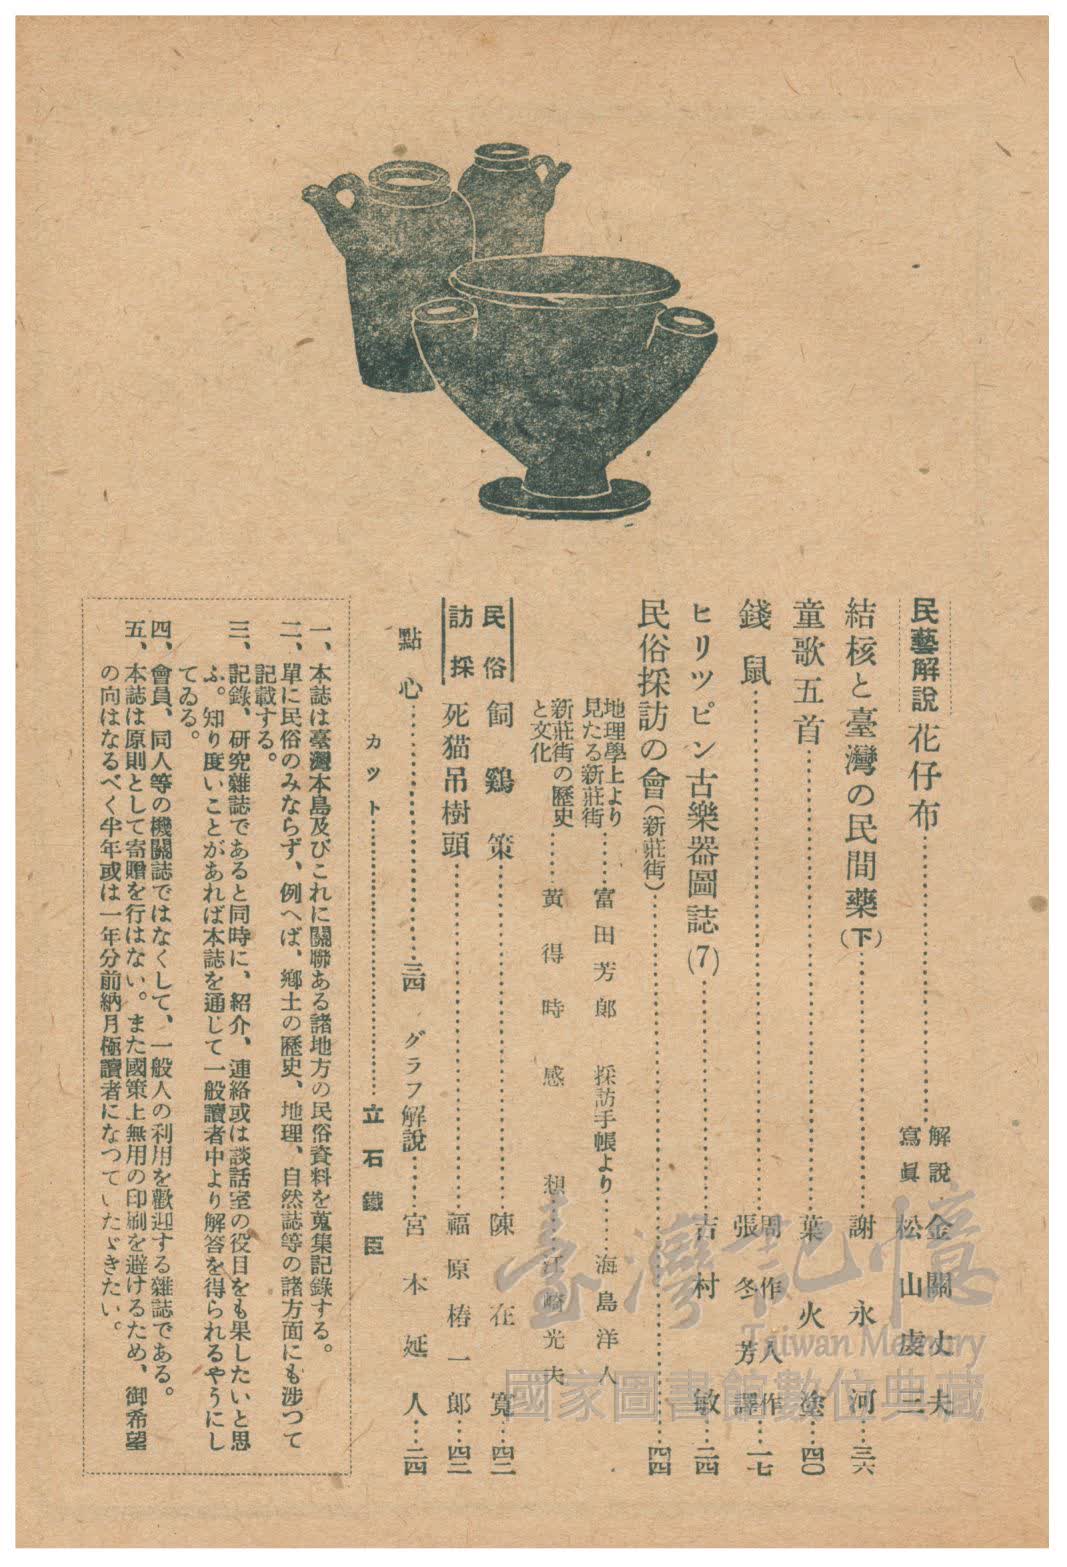 民藝解說 花仔布……解說 金關丈夫
寫眞 松山虔三
結核と臺灣の民間藥(下)……謝永河…三六
童歌五首……葉火塗…四〇
錢鼠……周作人作
張冬芳譯…一七
ヒリツピン古樂器圖誌(7)……吉村敏…二四
民俗採訪の會(新莊街)……四四
地理學上より
見たる新莊街……富田芳郎 採訪手帳より……海島洋人
新莊街の歷史
と文化……黃得時 感想……江崎光夫
民俗
採訪
飼鷄策……陳在寬…四二
死猫吊樹頭……福原椿一郎…四三
點心……三四 グラフ解說……宮本延人…二四
カット……立石鐵臣
一、本誌は臺灣本島及びこれに關聯ある諸地方の民俗資料を蒐集記錄する。
二、單に民俗のみならず、例へば、鄕土の歷史、地理、自然誌等の諸方面にも涉つて
記載する。
三、記錄、硏究雜誌であると同時に、紹介、連絡或は談話室の役目をも果したいと思
ふ。知り度いことがあれば本誌を通じて一般讀者中より解答を得られるやうにし
てゐる。
四、會員、同人等の機關誌ではなくして、一般人の利用を歡迎する雜誌である。
五、本誌は原則として寄贈を行はない。また國策上無用の印刷を避けるため、御希望
の向はなるべく半年或は一年分前納月極讀者になつていたゞきたい。
臺灣記憶
Taiwan Memory
國家圖書館數位典藏